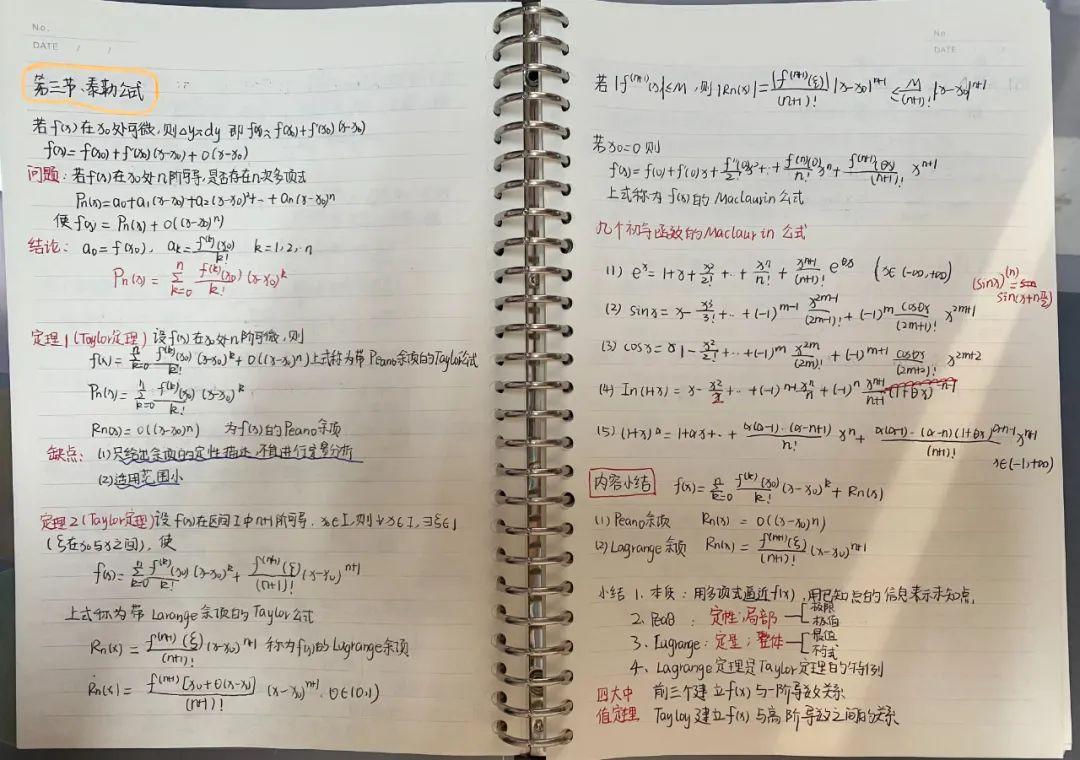 No.
DATE / /
第三节·泰勒公式
若f(x)在x₀处可微,则Δy≈dy 即 f(x)≈f(x₀)+f'(x₀)(x-x₀)
f(x)=f(x₀)+f'(x₀)(x-x₀)+o(x-x₀)
问题:若f(x)在x₀处n阶可导,是否存在n次多项式
Pn(x)=a₀+a₁(x-x₀)+a₂(x-x₀)²+··+an(x-x₀)ⁿ
使f(x)=Pn(x)+o((x-x₀)ⁿ)
结论: a₀=f(x₀), ak=f⁽ᵏ⁾(x₀)/k! k=1,2,··n
Pn(x)=Σ(k=0→n) f⁽ᵏ⁾(x₀)/k! (x-x₀)ᵏ
定理1(Taylor定理)设f(x)在x₀处n阶可微,则
f(x)=Σ(k=0→n) f⁽ᵏ⁾(x₀)/k! (x-x₀)ᵏ+o((x-x₀)ⁿ)上式称为带Peano余项的Taylor公式
Pn(x)=Σ(k=0→n) f⁽ᵏ⁾(x₀)/k! (x-x₀)ᵏ
Rn(x)=o((x-x₀)ⁿ) 为f(x)的Peano余项
缺点: (1)只给出余项的定性描述,不能进行定量分析
(2)适用范围小
定理2(Taylor定理)设f(x)在区间I中n+1阶可导,x₀∈I,则∀x∈I,∃ξ∈I
(ξ在x₀与x之间),使
f(x)=Σ(k=0→n) f⁽ᵏ⁾(x₀)/k! (x-x₀)ᵏ+f⁽ⁿ⁺¹⁾(ξ)/(n+1)! (x-x₀)ⁿ⁺¹
上式称为带Larange余项的Taylor公式
Rn(x)=f⁽ⁿ⁺¹⁾(ξ)/(n+1)! (x-x₀)ⁿ⁺¹ 称为f(x)的Lagrange余项
Rn(x)=f⁽ⁿ⁺¹⁾[x₀+θ(x-x₀)]/(n+1)! (x-x₀)ⁿ⁺¹. θ∈(0,1)
No.
DATE / /
若|f⁽ⁿ⁺¹⁾(x)|≤M,则|Rn(x)|=|f⁽ⁿ⁺¹⁾(ξ)|/(n+1)! |x-x₀|ⁿ⁺¹≤M/(n+1)! |x-x₀|ⁿ⁺¹
若x₀=0则
f(x)=f(0)+f'(0)x+f''(0)/2! x²+··+f⁽ⁿ⁾(0)/n! xⁿ+f⁽ⁿ⁺¹⁾(θx)/(n+1)! xⁿ⁺¹
上式称为f(x)的Maclaurin公式
几个初等函数的Maclaurin公式
(1) eˣ=1+x+x²/2!+··+xⁿ/n!+xⁿ⁺¹/(n+1)! e^θx (x∈(-∞,+∞)
(sinx)⁽ⁿ⁾=
sin(x+nπ/2)
(2) sinx=x-x³/3!+··+(-1)^m-1 x^2m-1/(2m-1)!+(-1)^m cosθx/(2m+1)! x^2m+1
(3) cosx=1-x²/2!+··+(-1)^m x^2m/(2m)!+(-1)^m+1 cosθx/(2m+2)! x^2m+2
(4) In(1+x)=x-x²/2+··+(-1)^n-1 xⁿ/n+(-1)ⁿ xⁿ⁺¹/n+1 (1+θx)^-n-1
(5) (1+x)^α=1+αx+··+α(α-1)··(α-n+1)/n! xⁿ+α(α-1)··(α-n)(1+θx)^α-n-1/(n+1)! xⁿ⁺¹
x∈(-1,+∞)
内容小结 f(x)=Σ(k=0→n) f⁽ᵏ⁾(x₀)/k! (x-x₀)ᵏ+Rn(x)
(1) Peano余项 Rn(x)=o((x-x₀)ⁿ)
(2) Lagrange余项 Rn(x)=f⁽ⁿ⁺¹⁾(ξ)/(n+1)! (x-x₀)ⁿ⁺¹
小结 1.本质:用多项式逼近f(x),用已知点的信息表示未知点.
2. : 定性;局部 极限 极值
3. Lagrange:定量;整体 最值 不等式
4、Lagrange定理是Taylor定理的特例
四大中值定理 前三个建立f(x)与一阶导数关系
Tayloy建立f(x)与高阶导数之间的关系